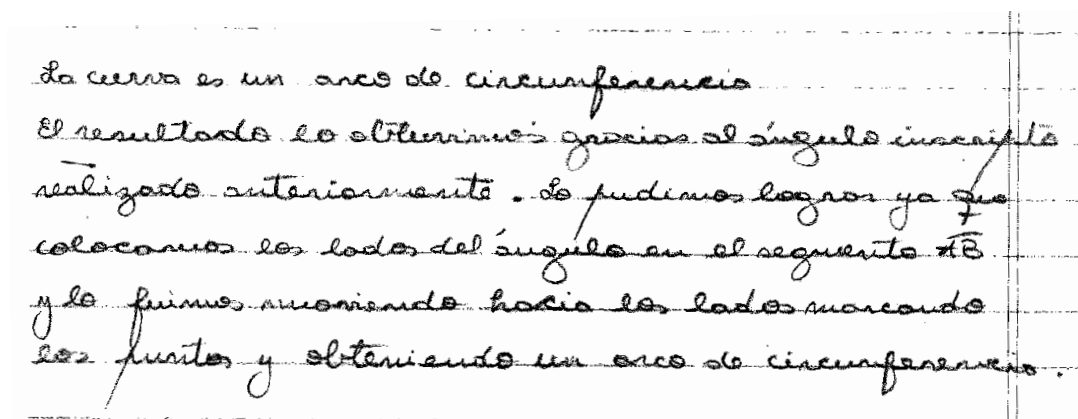 La curva es un arco de circunferencia
El resultado lo obtuvimos gracias al ángulo inscripto
realizado anteriormente. Lo pudimos lograr ya que
colocamos los lados del ángulo en el segmento AB
y lo fuimos moviendo hacia los lados marcando
los puntos y obteniendo un arco de circunferencia.